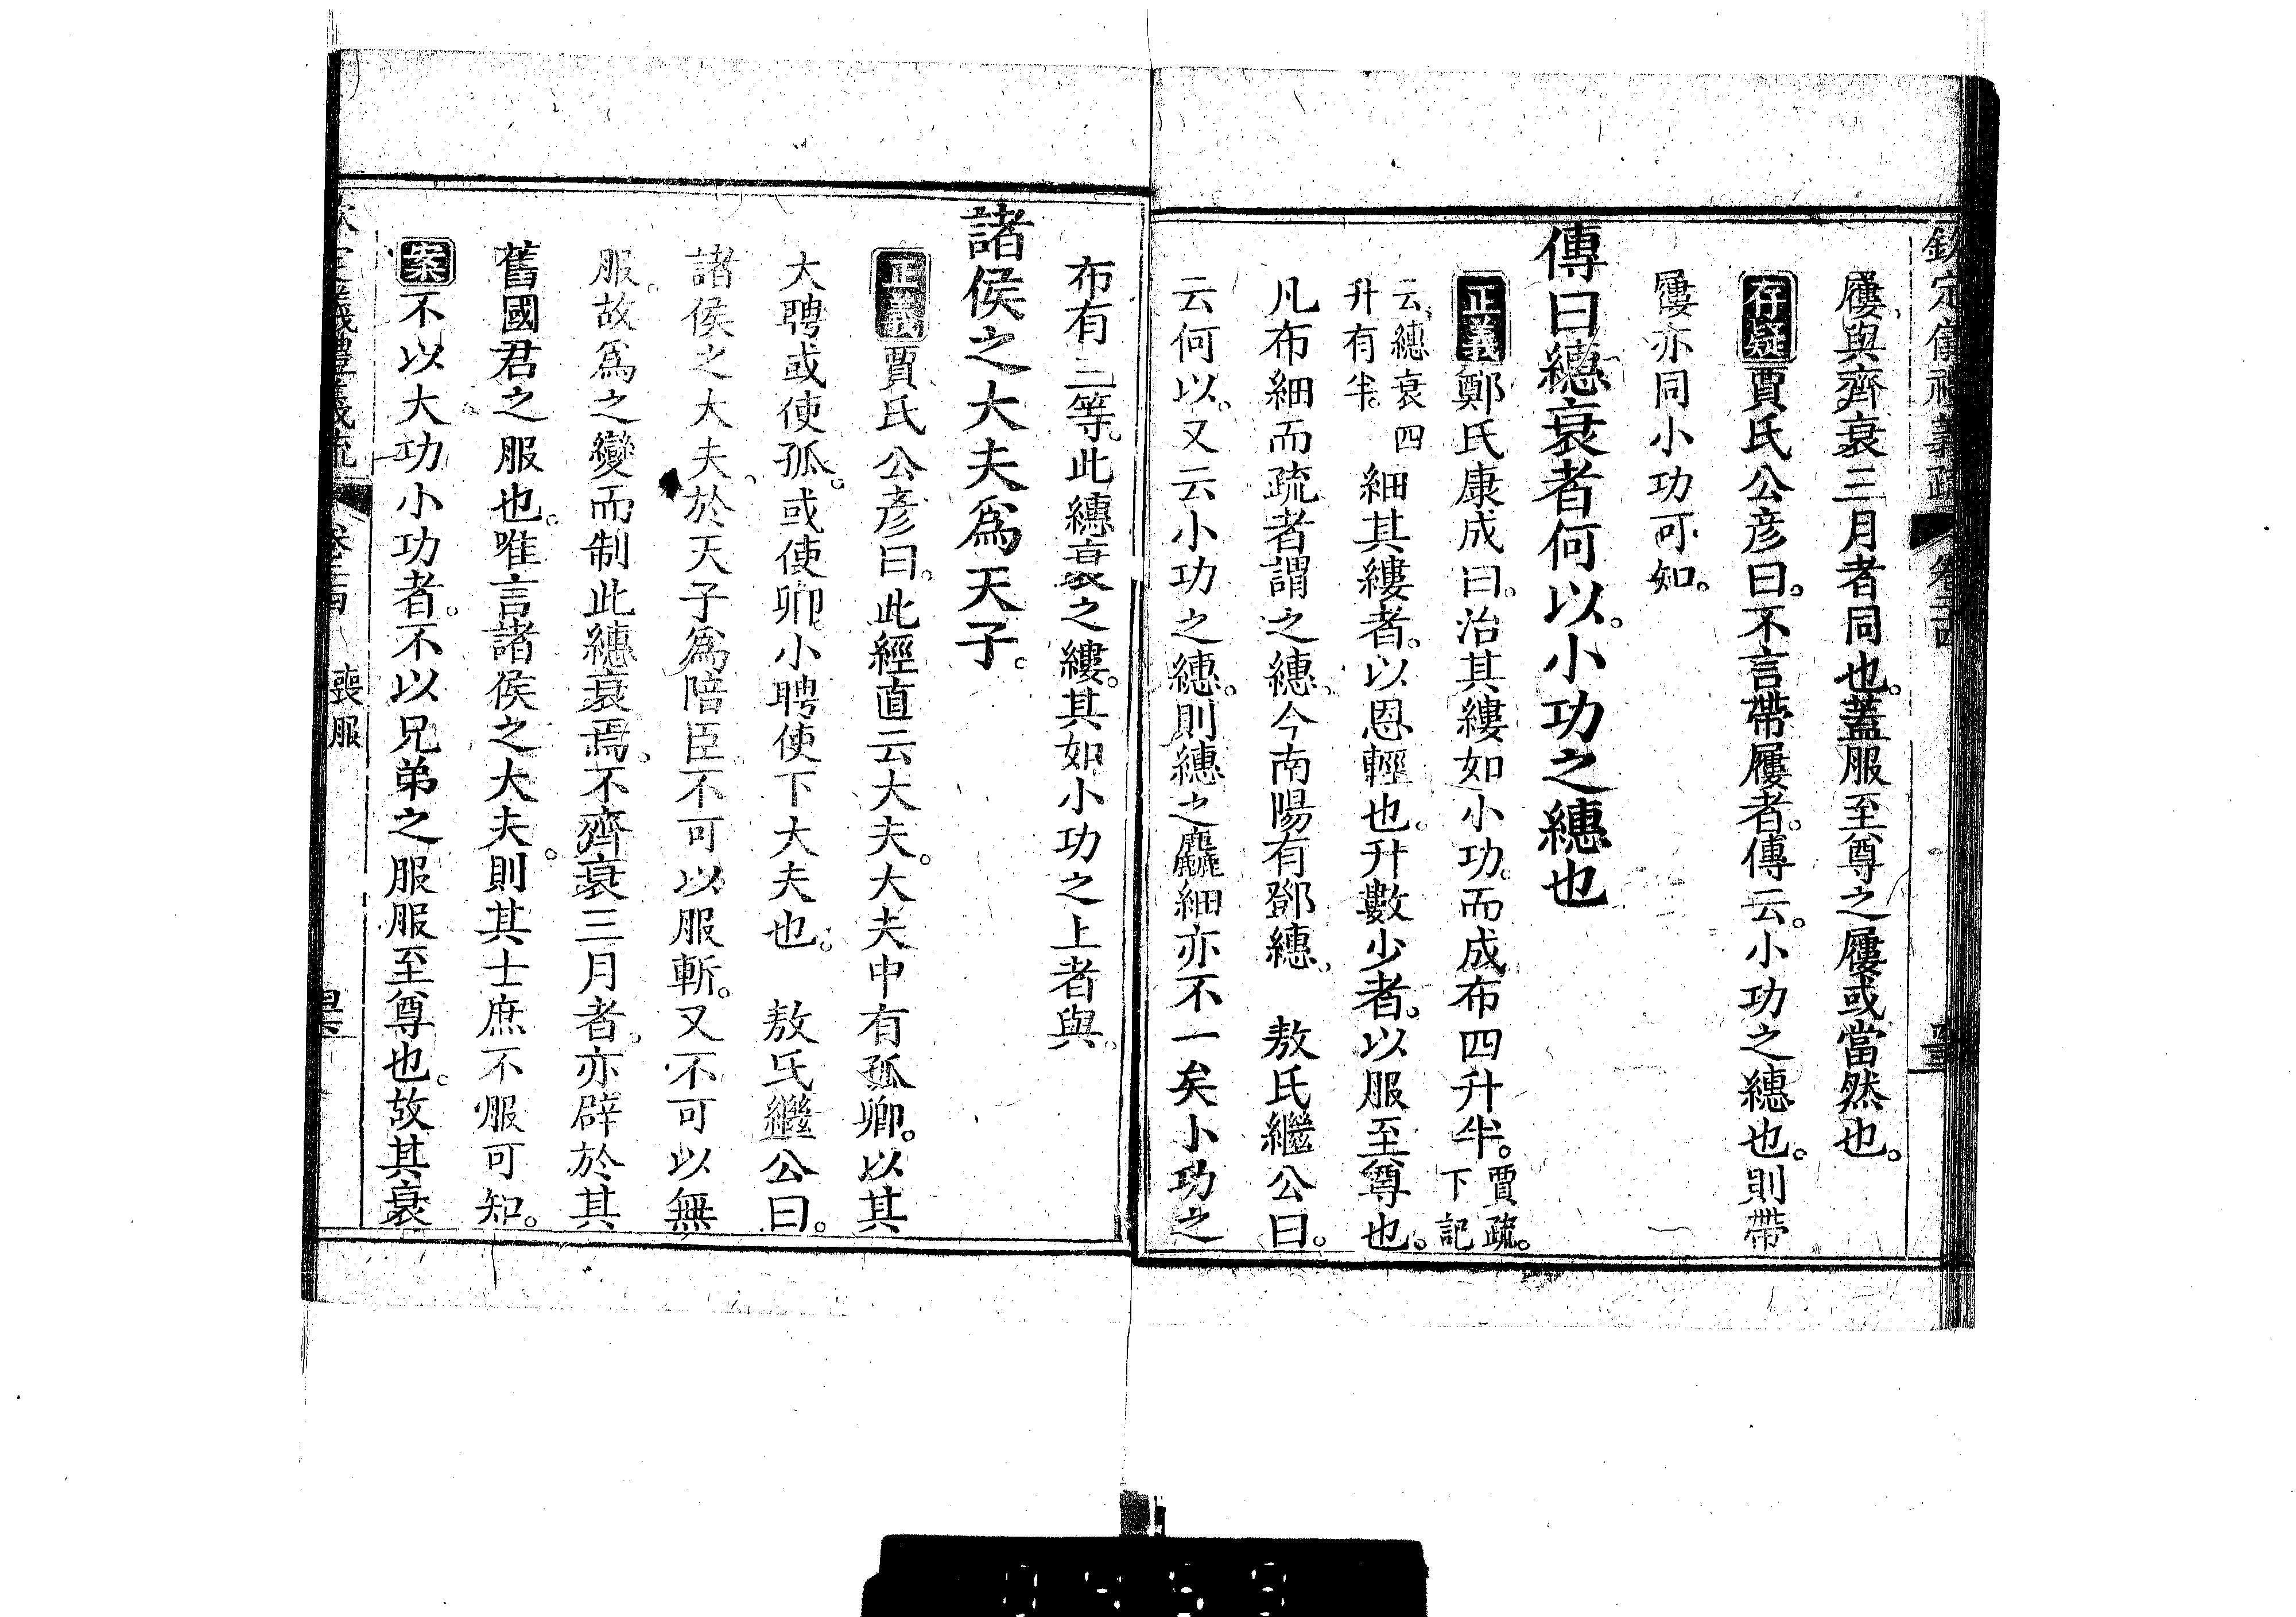 欽定儀禮義疏 卷二十四
屨與齊衰三月者同也。蓋服至尊之屨或當然也。
存疑賈氏公彥曰。不言帶屨者。傳云。小功之繐也。則帶
屨亦同小功可如。
傳曰繐衰者何以。小功之繐也
正義鄭氏康成曰。治其縷如小功。而成布四升半。賈疏。下記
云繐衰四升有半。細其縷者。以恩輕也。升數少者。以服至尊也。
凡布細而疏者謂之繐。今南陽有鄧繐。 敖氏繼公曰。
云何以。又云小功之繐。則繐之麤細亦不一矣小功之
布有三等。此繐衰之縷。其如小功之上者與。
諸侯之大夫爲天子。
正義賈氏公彥曰。此經直云大夫。大夫中有孤卿。以其
大聘或使孤。或使卿。小聘使下大夫也。 敖氏繼公曰。
諸侯之大夫、於天子爲陪臣。不可以服斬。又不可以無
服。故爲之變而制此繐衰焉。不齊衰三月者。亦辟於其
舊國君之服也。唯言諸侯之大夫。則其士庶不服可知。
案不以大功小功者。不以兄弟之服服至尊也。故其衰
欽定儀禮義疏 卷二十四 喪服